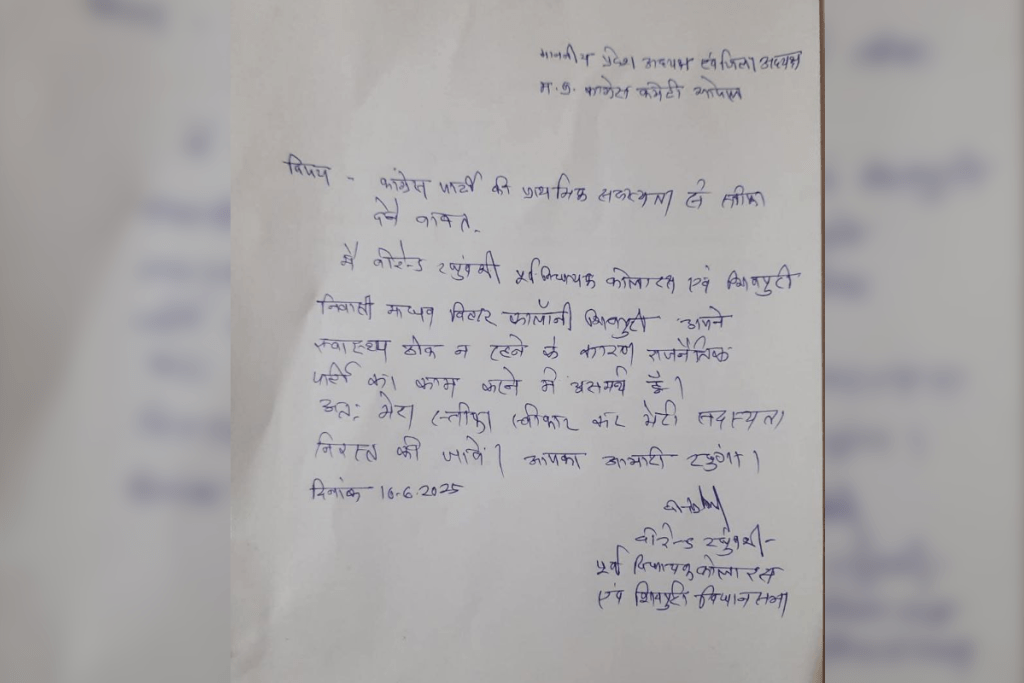 माननीय प्रदेश अध्यक्ष एवं जिला अध्यक्ष
म.प्र. कांग्रेस कमेटी भोपाल
विषय - कांग्रेस पार्टी की प्राथमिक सदस्यता से स्तीफा
देने बाबत.
मैं वीरेन्द्र रघुवंशी पूर्व विधायक कोलारस एवं शिवपुरी
निवासी माधव विहार कालॉनी शिवपुरी अपने
स्वास्थ्य ठीक न रहने के कारण राजनैतिक
पार्टी का काम करने में असमर्थ हूँ।
अतः मेरा स्तीफा स्वीकार कर मेरी सदस्यता
निरस्त की जावें। आपका आभारी रहुंगा।
दिनांक 16.6.2025
वीरेन्द्र रघुवंशी
पूर्व विधायक कोलारस
एवं शिवपुरी विधानसभा